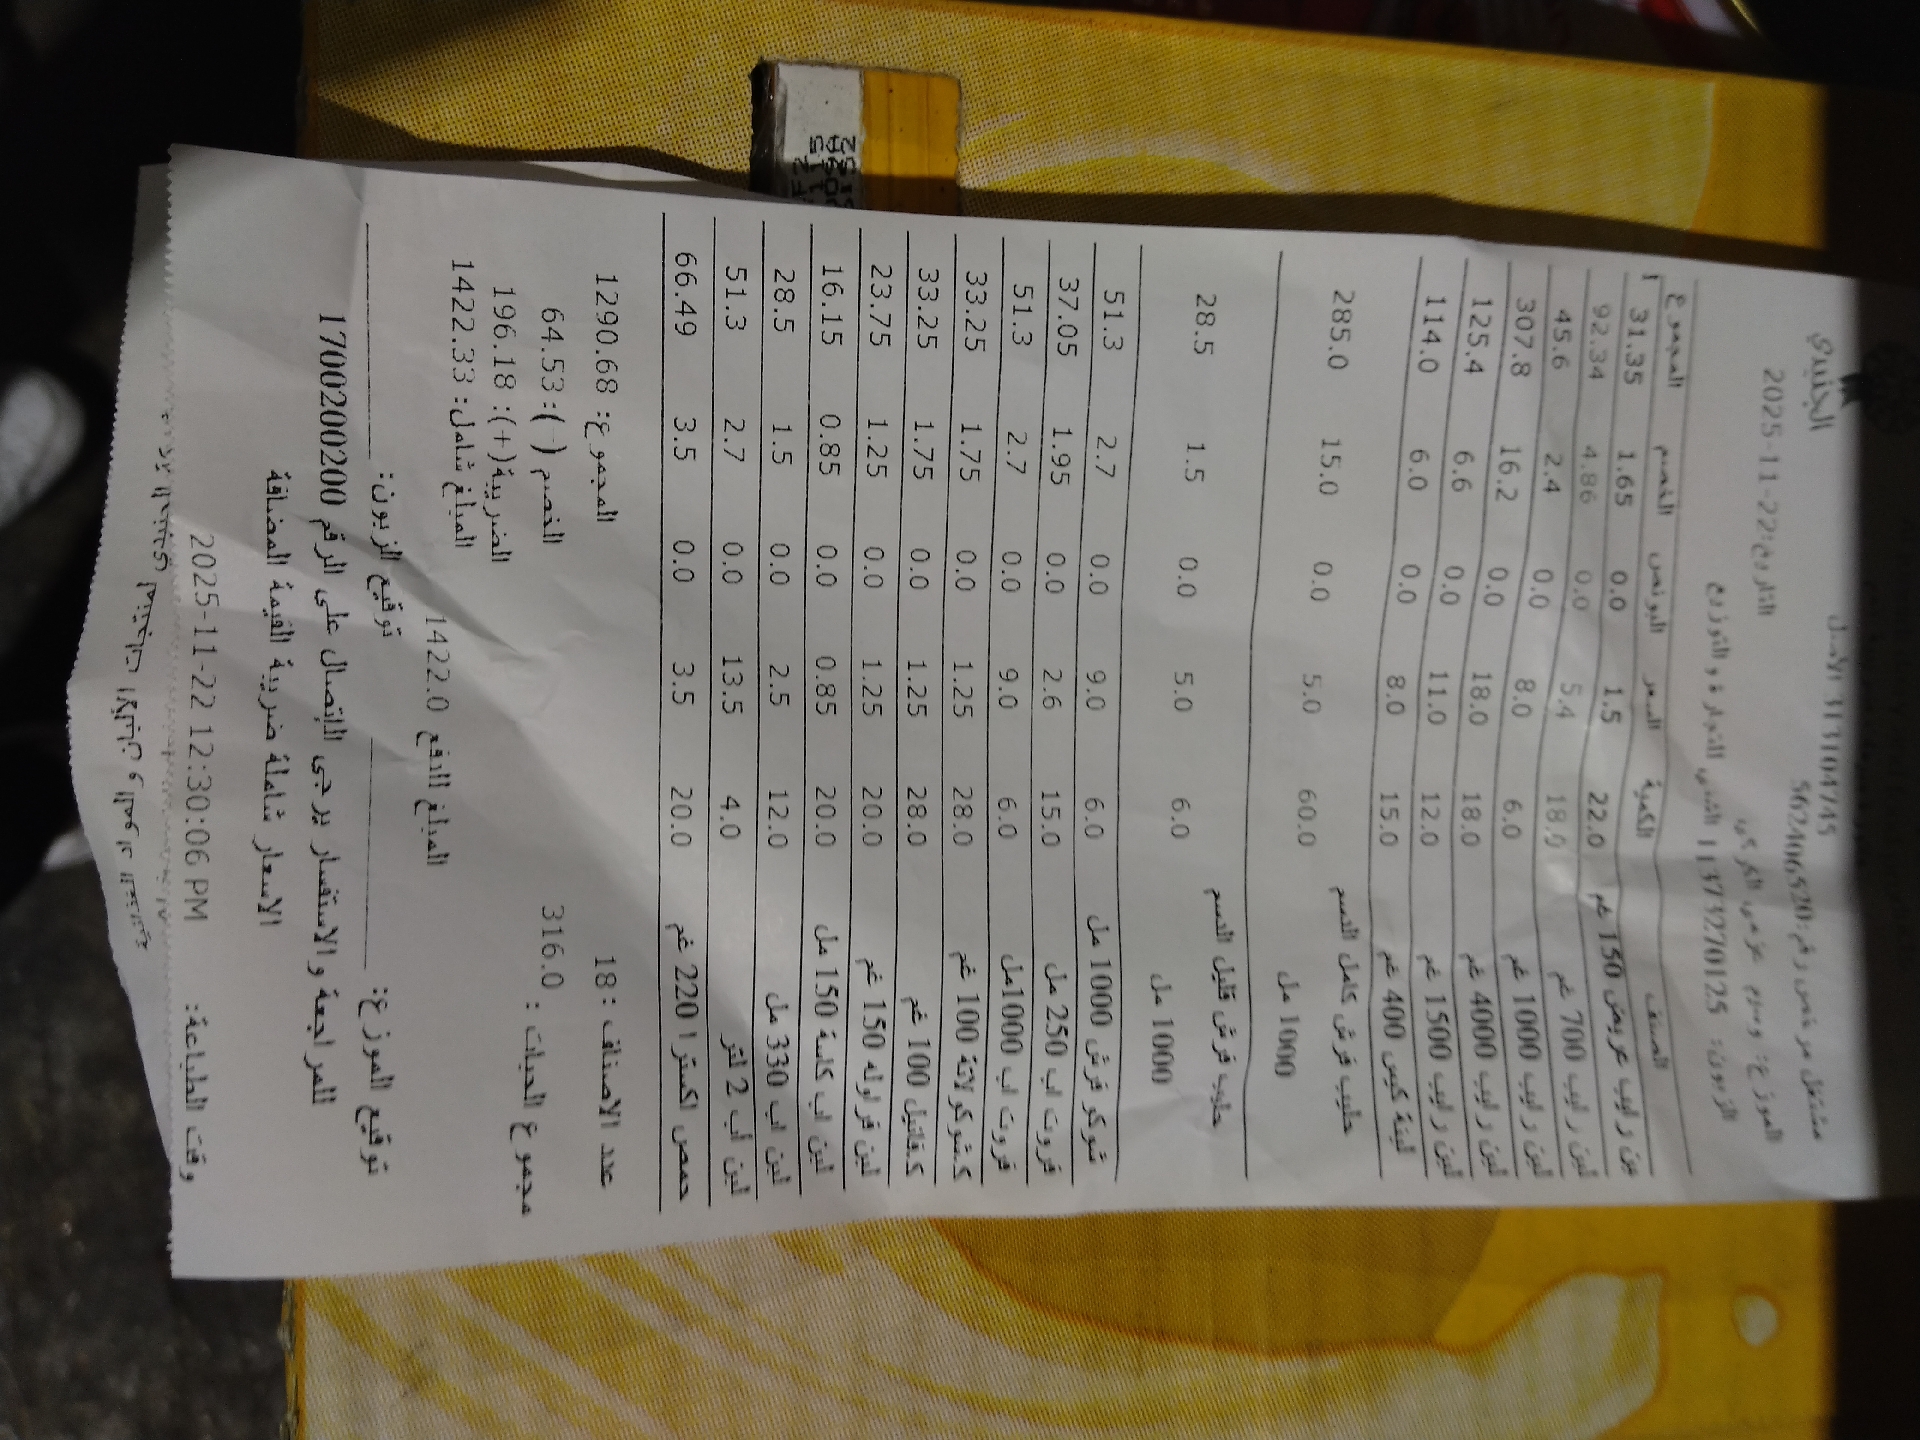 الجنيدي
313104745 الأصل
مشتغل مرخص رقم:562406520
التاريخ:22-11-2025
الموزع: وسيم عزمي الكركي
الزبون: 1137327012S الشني للتجارة والتوزيع
الصنف الكمية السعر البونص الخصم المجموع
لبن رايب عريض 150 غم 22.0 1.5 0.0 1.65 31.35
لبن رايب 700 غم 18.0 5.4 0.0 4.86 92.34
لبن رايب 1000 غم 6.0 8.0 0.0 2.4 45.6
لبن رايب 4000 غم 18.0 18.0 0.0 16.2 307.8
لبن رايب 1500 غم 12.0 11.0 0.0 6.6 125.4
لبنة كيس 400 غم 15.0 8.0 0.0 6.0 114.0
حليب فرش كامل الدسم 60.0 5.0 0.0 15.0 285.0
1000 مل
حليب فرش قليل الدسم 6.0 5.0 0.0 1.5 28.5
1000 مل
شوكو فرش 1000 مل 6.0 9.0 0.0 2.7 51.3
فروت اب 250 مل 15.0 2.6 0.0 1.95 37.05
فروت اب 1000مل 6.0 9.0 0.0 2.7 51.3
كشوكولاتة 100 غم 28.0 1.25 0.0 1.75 33.25
كفانيل 100 غم 28.0 1.25 0.0 1.75 33.25
لبن فراوله 150 غم 20.0 1.25 0.0 1.25 23.75
لبن اب كاسة 150 مل 20.0 0.85 0.0 0.85 16.15
لبن اب 330 مل 12.0 2.5 0.0 1.5 28.5
لبن أب 2 لتر 4.0 13.5 0.0 2.7 51.3
حمص اكسترا 220 غم 20.0 3.5 0.0 3.5 66.49
عدد الاصناف :18 المجموع: 1290.68
مجموع الحبات : 316.0 الخصم (-):64.53
الضريبة(+): 196.18
المبلغ شامل: 1422.33
المبلغ الدفع 1422.0
توقيع الموزع: توقيع الزبون:
للمراجعة والاستفسار يرجى الاتصال على الرقم 1700200200
الاسعار شاملة ضريبة القيمة المضافة
وقت الطباعة: 2025-11-22 12:30:06 PM